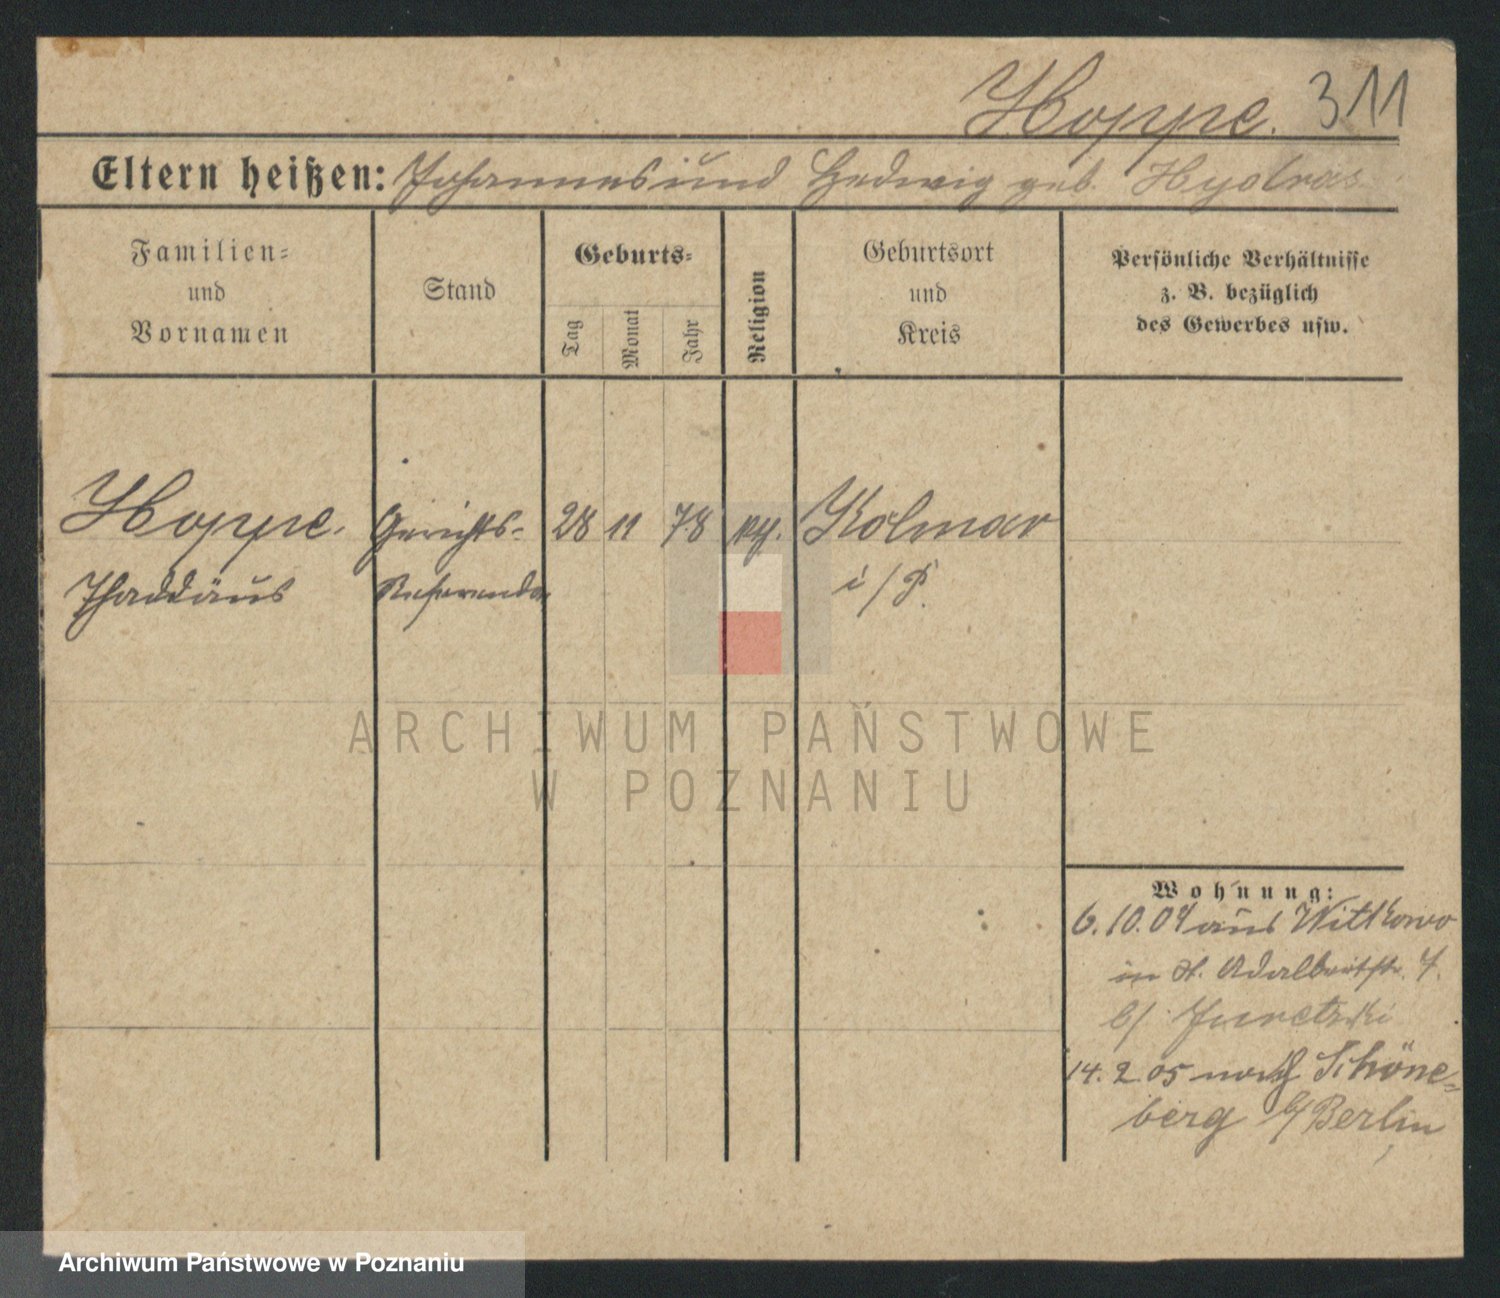 Hoppe. 311
Eltern heißen: Johannes und Hedwig geb.
Familien-
und
Vornamen
Stand
Geburts-
Tag
Monat
Jahr
Religion
Geburtsort
und
Kreis
Persönliche Verhältnisse
z. B. bezüglich
des Gewerbes usw.
Hoppe. Gerichts- 28 11 78 Kolmar
Thaddäus Referendar i/P.
Wohnung:
6.10.04 aus Wittkowo
in H. Adalbertstr. 4.
b/
14.2.05 nach Schöne-
berg b/Berlin
ARCHIWUM PAŃSTWOWE
W POZNANIU
Archiwum Państwowe w Poznaniu